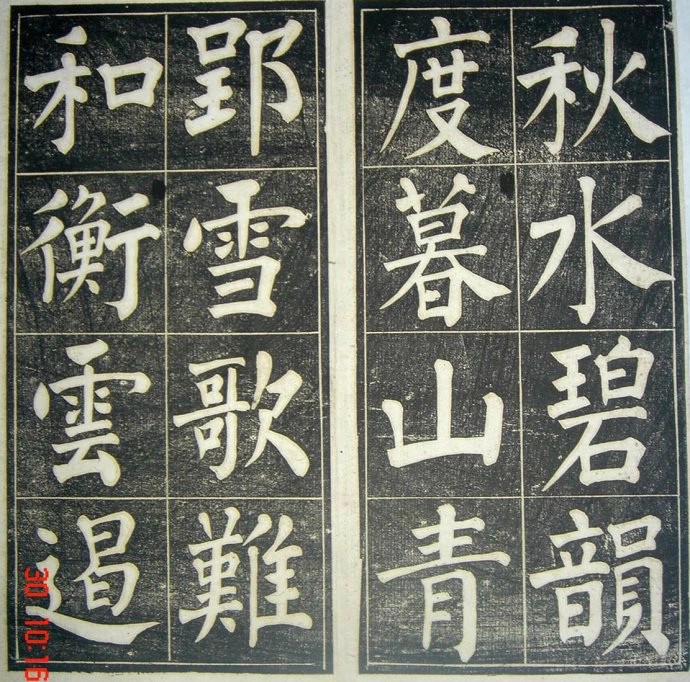 秋水碧韻
度暮山青
郢雪歌難
和衡雲遏
30.10.16